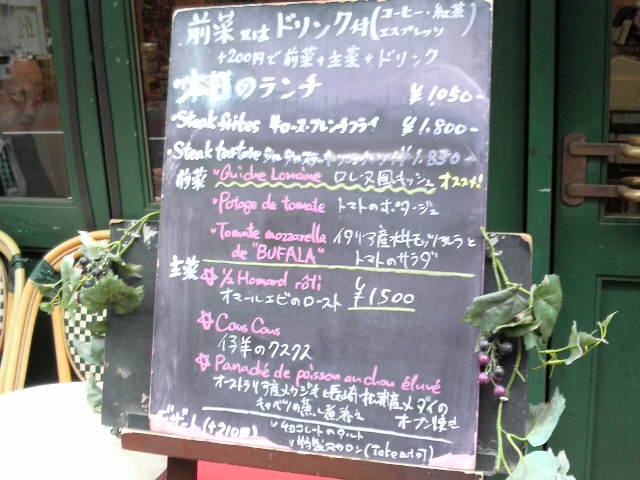 前菜又はドリンク付(コーヒー・紅茶
エスプレッソ)
+200円で前菜+主菜+ドリンク
のランチ ¥1,050-
Steak frites 牛ロース・フレンチフライ ¥1,800-
Steak tartare ¥1,830-
前菜 Quiche Lorraine ロレーヌ風キッシュ オススメ!
Potage de tomate トマトのポタージュ
Tomate mozzarella イタリア産水牛モッツァレラと
de "BUFALA" トマトのサラダ
主菜 ½ Homard rôti
オマールエビのロースト ¥1500
Cous Cous
仔羊のクスクス
Panaché de poisson au chou étuvé
オーストラリア産メカジキと長崎 産メダイの
キャベツの蒸し煮添え オーブン焼き
デザート(+210円) チョコレートのタルト
マカロン(Take out可)